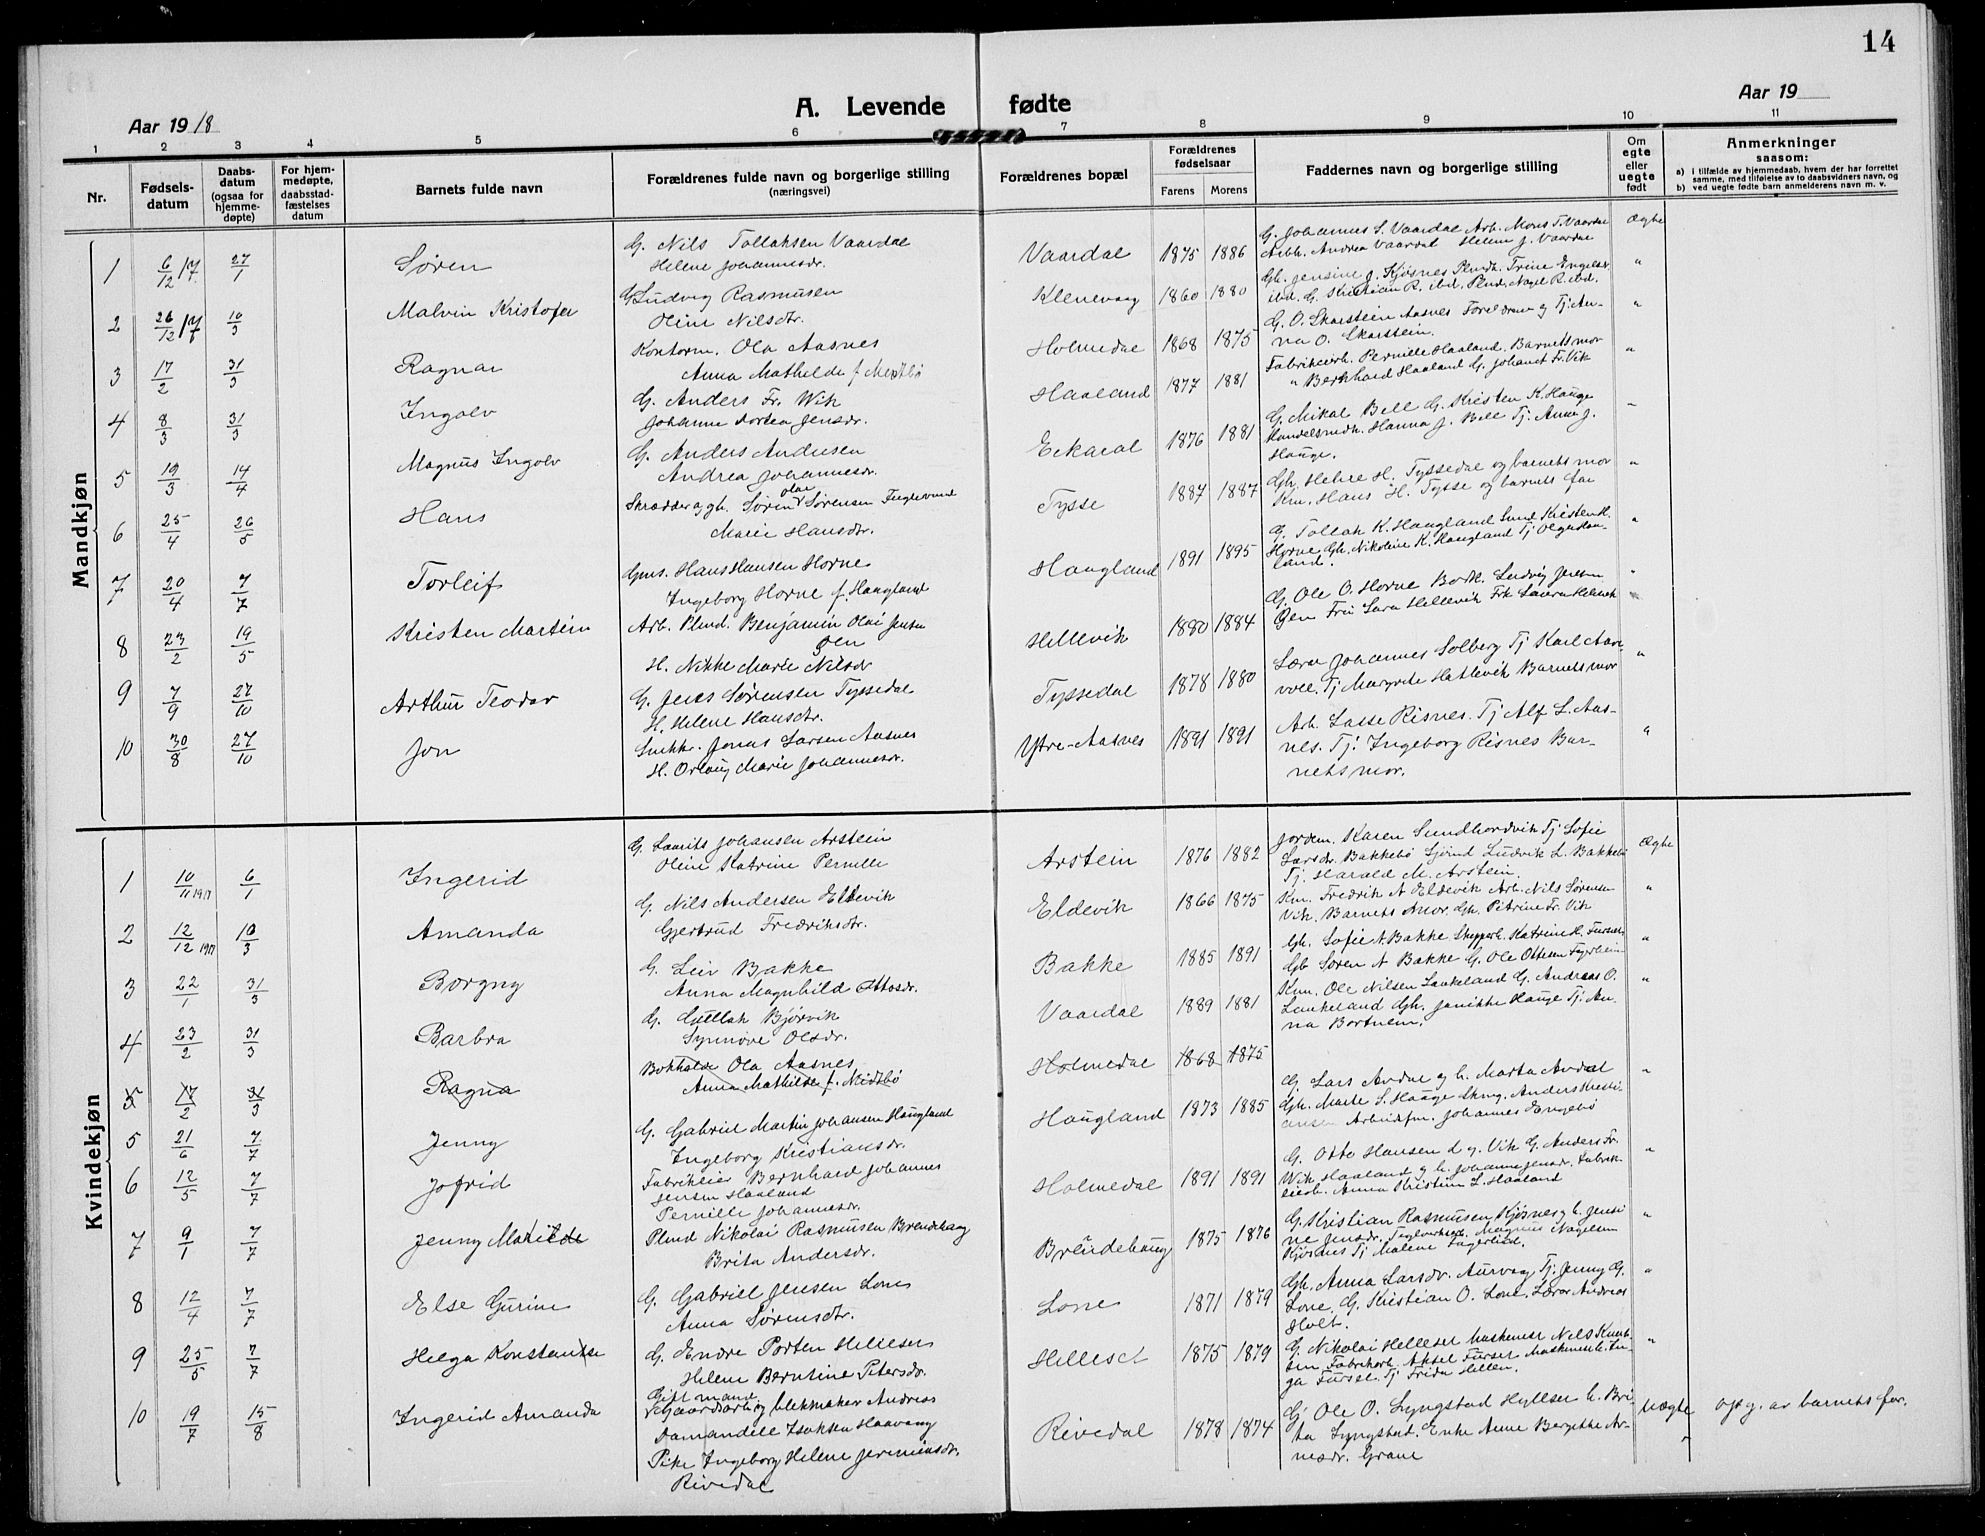 14
A. Levende fødte
Aar 1918
Aar 19
1 2 3 4 5 6 7 8 9 10 11
Nr.
Fødsels-datum
Daabs-datum (ogsaa for hjemme-døpte)
For hjem-medøpte, daabsstad-fæstelses datum
Barnets fulde navn
Forældrenes fulde navn og borgerlige stilling (næringsvei)
Forældrenes bopæl
Forældrenes fødselsaar
Farens Morens
Faddernes navn og borgerlige stilling
Om egte eller uegte født
Anmerkninger saasom:
a) i tilfælde av hjemmedaab, hvem der har forrettet samme, med tilføielse av to daabsvidners navn, og
b) ved uegte fødte barn anmelderens navn m. v.
Mandkjøn
1 6/12 17 27/1 Søren G. Nils Tollaksen Vaardal Vaardal 1875 1886 G. Johannes S. Vaardal Arb. Mons T. Vaardal Ægte
Helene Johannesdr. Arbh. Andrea Vaardal Helene J. Vaardal
2 26/12 17 10/3 Malvin Kristofer G. Ludvig Rasmusen Klenevaag 1860 1880 Gh. Jensine J. Kjøsnes Plmdh. Trine Engelsr. "
Oline Nilsdtr. ibd. G. Kristian R. ibd. Plmd. Nagel R. ibd.
3 17/2 31/3 Ragnar Kontorm. Ola Aasnes Holmedal 1868 1875 G. O. Skarstein Aasnes Foreldrene og Tj. An- "
Anna Mathilde f. na O. Skarstein.
4 8/3 31/3 Ingolv G. Anders Fr. Wik Haaland 1877 1881 Fabrikeierh. Pernille Haaland. Barnets mor "
Johanne Dortea Jensdr. " Bernhard Haaland G. Johanes Fr. Vik
5 19/3 14/4 Magnus Ingolv G. Anders Andersen 1876 1881 G. Mikal Bell G. Kristen K. Hauge "
Andrea Johannesdr. Handelsmdh. Hanna J. Bell Tj. Anna J.
Hauge.
6 25/4 26/5 Hans Skrædder og gb. Søren Olai Sørensen Tysse 1887 1887 Gh. H. Tyssedal og barnets mor "
Marie Hansdr. Km. Hans H. Tysse og barnets far
7 20/4 7/7 Torleif Gms. Hans Hansen Horne Haugland 1891 1895 G. Tollak K. Haugland Kristen H. "
Ingeborg Horne f. Haugland Horne Gh. Nikoline K. Haugland Tj. Olga Hau-
land.
8 23/2 19/5 Kristen Martin Arb. Plmd. Benjamin Olai Jensen Hellevik 1880 1884 G. Ole O. Horne Ludvig Jensen "
Øen Øen Fru Lara Hellevik Frk Laura Hellevik
H. Nikke Marie Nilsdr
9 7/9 27/10 Arthur Teodor G. Jens Sørensen Tyssedal Tyssedal 1878 1880 Lærer Johannes Solberg Tj Karl Aar- "
H. Helene Hansdtr. voll. Tj Margrete Hatlevik Barnets mor
10 30/8 27/10 Jon Snekk. Jonas Larsen Aasnes Ytre-Aasnes 1891 1891 Arb. Lasse Risnes. Tj Alf L. Aas- "
H. Orlaug Marie Johannesdr. nes. Tj. Ingeborg Risnes Bar-
nets mor.
Kvindekjøn
1 10/11 1917 6/1 Ingerid G. Laurits Johansen Arstein Arstein 1876 1882 Jordem. Karen Sundhordvik Tj Sofie Ægte
Oline Katrine Pernille Larsdr. Bakkebø Ludvik L. Bakkebø
Tj. Harald M. Arstein.
2 12/12 1917 10/3 Amanda G. Nils Andersen Eldevik Eldevik 1866 1875 Km. Fredrik A Eldevik Arb. Nils Sørensen "
Gjertrud Fredriksdtr. Vik. Barnets mor. Gh. Petrine Fr. Vik
3 22/1 31/3 Borgny G. Leiv Bakke Bakke 1885 1891 Gh. Sofie N. Bakke Skipperh. Katrine H. "
Anna Magnhild Ottosdr. Gb Søren N Bakke G. Ole Ottesen
4 23/2 31/3 Barbra G. Bjørvik Vaardal 1889 1881 Km. Ole Nilsen Laukeland G. Andreas O. "
Synnøve Olsdr. Laukeland Gh. Jenikke Hauge Tj. An-
na Bortnem.
5 17/2 31/3 Ragna Bokholder Ola Aasnes Holmedal 1868 1875
Anna Mathilde f.
5 21/6 7/7 Jenny G. Gabriel Martin Johansen Haugland Haugland 1873 1885 G. Lars Avdal og h. Marta Avdal "
Ingeborg Kristiansdr. Gh. Marte S. Hauge Anders Kristi-
ansen Arbeidfm. Johannes Engebø
6 12/5 7/7 Jofrid Fabrikeier Bernhard Johannes Holmedal 1891 1891 G. Otto Hansen d y. Vik G. Anders Fr. "
Jensen Haaland Wik Haaland og h. Johanne Jensdr. Fabrik-
Pernille Johannesdr. eierh. Anna Kristine L. Haaland
7 9/1 7/7 Jenny Plmd Nikolai Rasmusen Brendehaug Breidehaug 1875 1876 G. Kristian Rasmusen Kjøsnes og h. Jensi- "
Brita Andersdr. ne Jensdr. Magnus Nagelsen
Kjøsnes Tj Malene Fagerlied.
8 12/4 7/7 Else Gurine G. Gabriel Jensen Lone Lone 1871 1879 Gh. Anna Larsdr. Aurvaag Tj. Jenny G. "
Anna Sørensdtr. Lone. G. Kristian O. Lone. Lærer Andreas
Holt.
9 25/5 7/7 Helga Konstanse G. Endre Porten Hellesen Helleset 1875 1879 G. Nikolai Helleset Maskinmst Nils "
Helene Berntine Petersdr. Fabrikarb. Aksel Furset Maskinmsth. In-
ga Furset. Tj Frida Hellen.
10 19/7 15/8 Ingerid Amanda Gift mand Rivedal 1878 1874 Gj. Ole O. Lyngstad Hyllset h. Bri- Uægte Opg. av barnets far.
Gaardsarb. og blekmaker Andreas ta Lyngstad. Enke Anne Bergitte Ar-
Damandell Isaksen Haavang nesdr. Grane
Pike Ingeborg Helene Jeremiasdr.
Rivedal